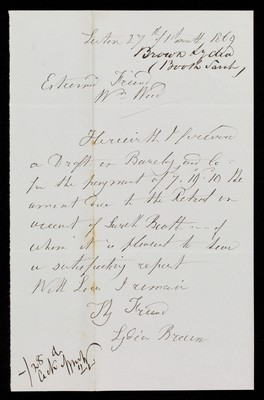 Luton 27th of 11 month 1869
Brown Lydia
(Booth Sarah)
Esteemed Friend
Wm Wood
Herewith I forward
a Draft on Barclay and Co
for the payment of 7. 10. 10 the
amount due to the Retreat on
account of Sarah Booth of
whom it is pleasant to have
a satisfactory report
With Love I remain
Thy Friend
Lydia Brown